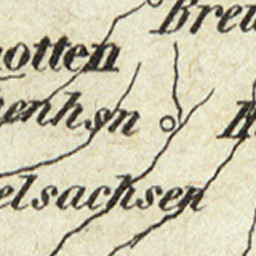 Breu
otten
enhsn
elsachsen